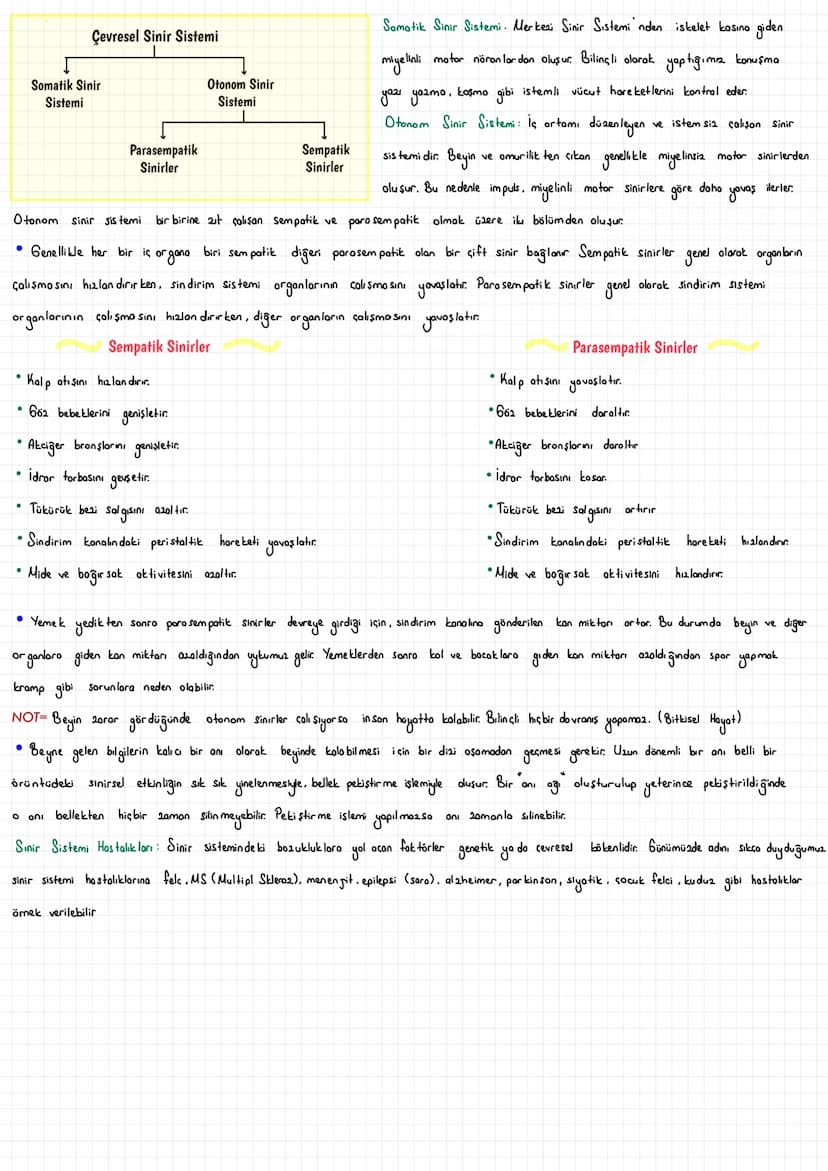 Çevresel Sinir Sistemi
Somatik Sinir Sistemi
Otonom Sinir Sistemi
Parasempatik Sinirler
Sempatik Sinirler
Somatik Sinir Sistemi: Merkezi Sinir Sistemi'nden iskelet kasına giden
miyelinli motor nöronlardan oluşur. Bilinçli olarak yaptığımız konuşma
yazı yazma, koşma gibi istemli vücut hareketlerini kontrol eder.
Otonom Sinir Sistemi: İç ortamı düzenleyen ve istemsiz çalışan sinir
sistemidir. Beyin ve omurilikten çıkan genellikle miyelinsiz motor sinirlerden
oluşur. Bu nedenle impuls, miyelinli motor sinirlere göre daha yavaş ilerler.
Otonom sinir sistemi birbirine zıt çalışan sempatik ve parasempatik olmak üzere iki bölümden oluşur.
• Genellikle her bir iç organa biri sempatik diğeri parasempatik olan bir çift sinir bağlanır. Sempatik sinirler genel olarak organların
çalışmasını hızlandırırken, sindirim sistemi organlarının çalışmasını yavaşlatır. Parasempatik sinirler genel olarak sindirim sistemi
organlarının çalışmasını hızlandırırken, diğer organların çalışmasını yavaşlatır.
Sempatik Sinirler
• Kalp atışını hızlandırır.
• Göz bebeklerini genişletir.
• Akciğer bronşlarını genişletir.
• İdrar torbasını gevşetir.
• Tükürük bezi salgısını azaltır.
• Sindirim kanalındaki peristaltik hareketi yavaşlatır.
• Mide ve bağırsak aktivitesini azaltır.
Parasempatik Sinirler
• Kalp atışını yavaşlatır.
• Göz bebeklerini daraltır.
• Akciğer bronşlarını daraltır
• İdrar torbasını kasar.
• Tükürük bezi salgısını artırır
• Sindirim kanalındaki peristaltik hareketi hızlandırır.
• Mide ve bağırsak aktivitesini hızlandırır.
• Yemek yedikten sonra parasempatik sinirler devreye girdiği için, sindirim kanalına gönderilen kan miktarı artar. Bu durumda beyin ve diğer
organlara giden kan miktarı azaldığından uykumuz gelir. Yemeklerden sonra kol ve bacaklara giden kan miktarı azaldığından spor yapmak
kramp gibi sorunlara neden olabilir.
NOT= Beyin zarar gördüğünde otonom sinirler çalışıyorsa insan hayatta kalabilir. Bilinçli hiçbir davranış yapamaz. (Bitkisel Hayat)
• Beyne gelen bilgilerin kalıcı bir anı olarak beyinde kalabilmesi için bir dizi aşamadan geçmesi gerekir. Uzun dönemli bir anı belli bir
örüntüdeki sinirsel etkinliğin sık sık yinelenmesiyle, bellek pekiştirme işlemiyle oluşur. Bir "anı ağı" oluşturulup yeterince pekiştirildiğinde
o anı bellekten hiçbir zaman silinmeyebilir. Pekiştirme işlemi yapılmazsa anı zamanla silinebilir.
Sinir Sistemi Hastalıkları: Sinir sistemindeki bozukluklara yol açan faktörler genetik ya da çevresel kökenlidir. Günümüzde adını sıkça duyduğumuz
sinir sistemi hastalıklarına felç, MS (Multipl Skleroz), menenjit, epilepsi (sara), alzheimer, parkinson, siyatik, çocuk felci, kuduz gibi hastalıklar
örnek verilebilir